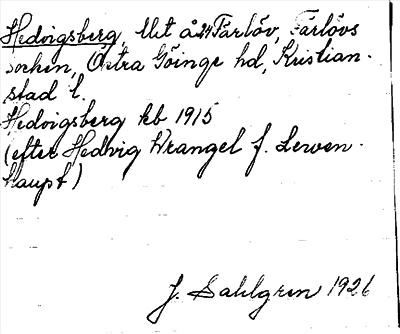 Hedvigsberg, lht å 24 Färlöv, Färlövs
socken, Östra Göinge hd, Kristian-
stad l.
Hedvigsberg kb 1915
(efter Hedvig Wrangel f. Lewen-
haupt)
J. Sahlgren 1926